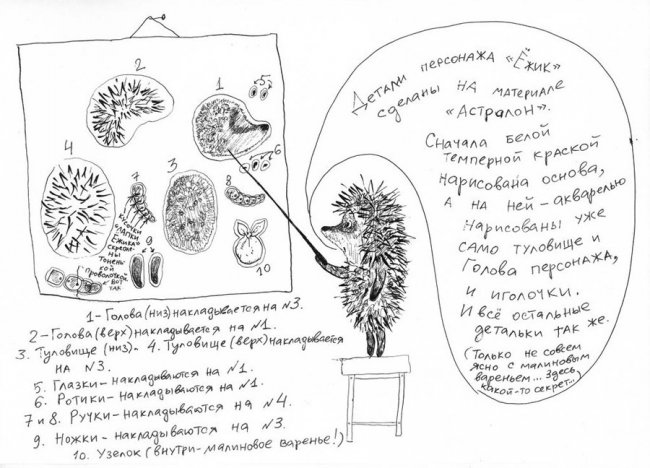 2
1
5
6
4
7
3
8
кусочки
лапки
Ёжика
скрепле-
ны
тонень-
кой
проволочкой
вот
так
9
10
1 - Голова (низ) накладывается на №3.
2 - Голова (верх) накладывается на №1.
3. Туловище (низ). - 4. Туловище (верх) накладывается
на №3.
5. Глазки - накладываются на №1.
6. Ротики - накладываются на №1.
7 и 8. Ручки - накладываются на №4.
9. Ножки - накладываются на №3.
10. Узелок (внутри - малиновое варенье!)
Детали персонажа «Ёжик»
сделаны на материале
«Астралон».
Сначала белой
темперной краской
нарисована основа,
а на ней - акварелью
нарисованы уже
само туловище и
голова персонажа,
и иголочки.
И всё остальные
детальки так же.
(Только не совсем
ясно с малиновым
вареньем... Здесь
какой-то секрет...)